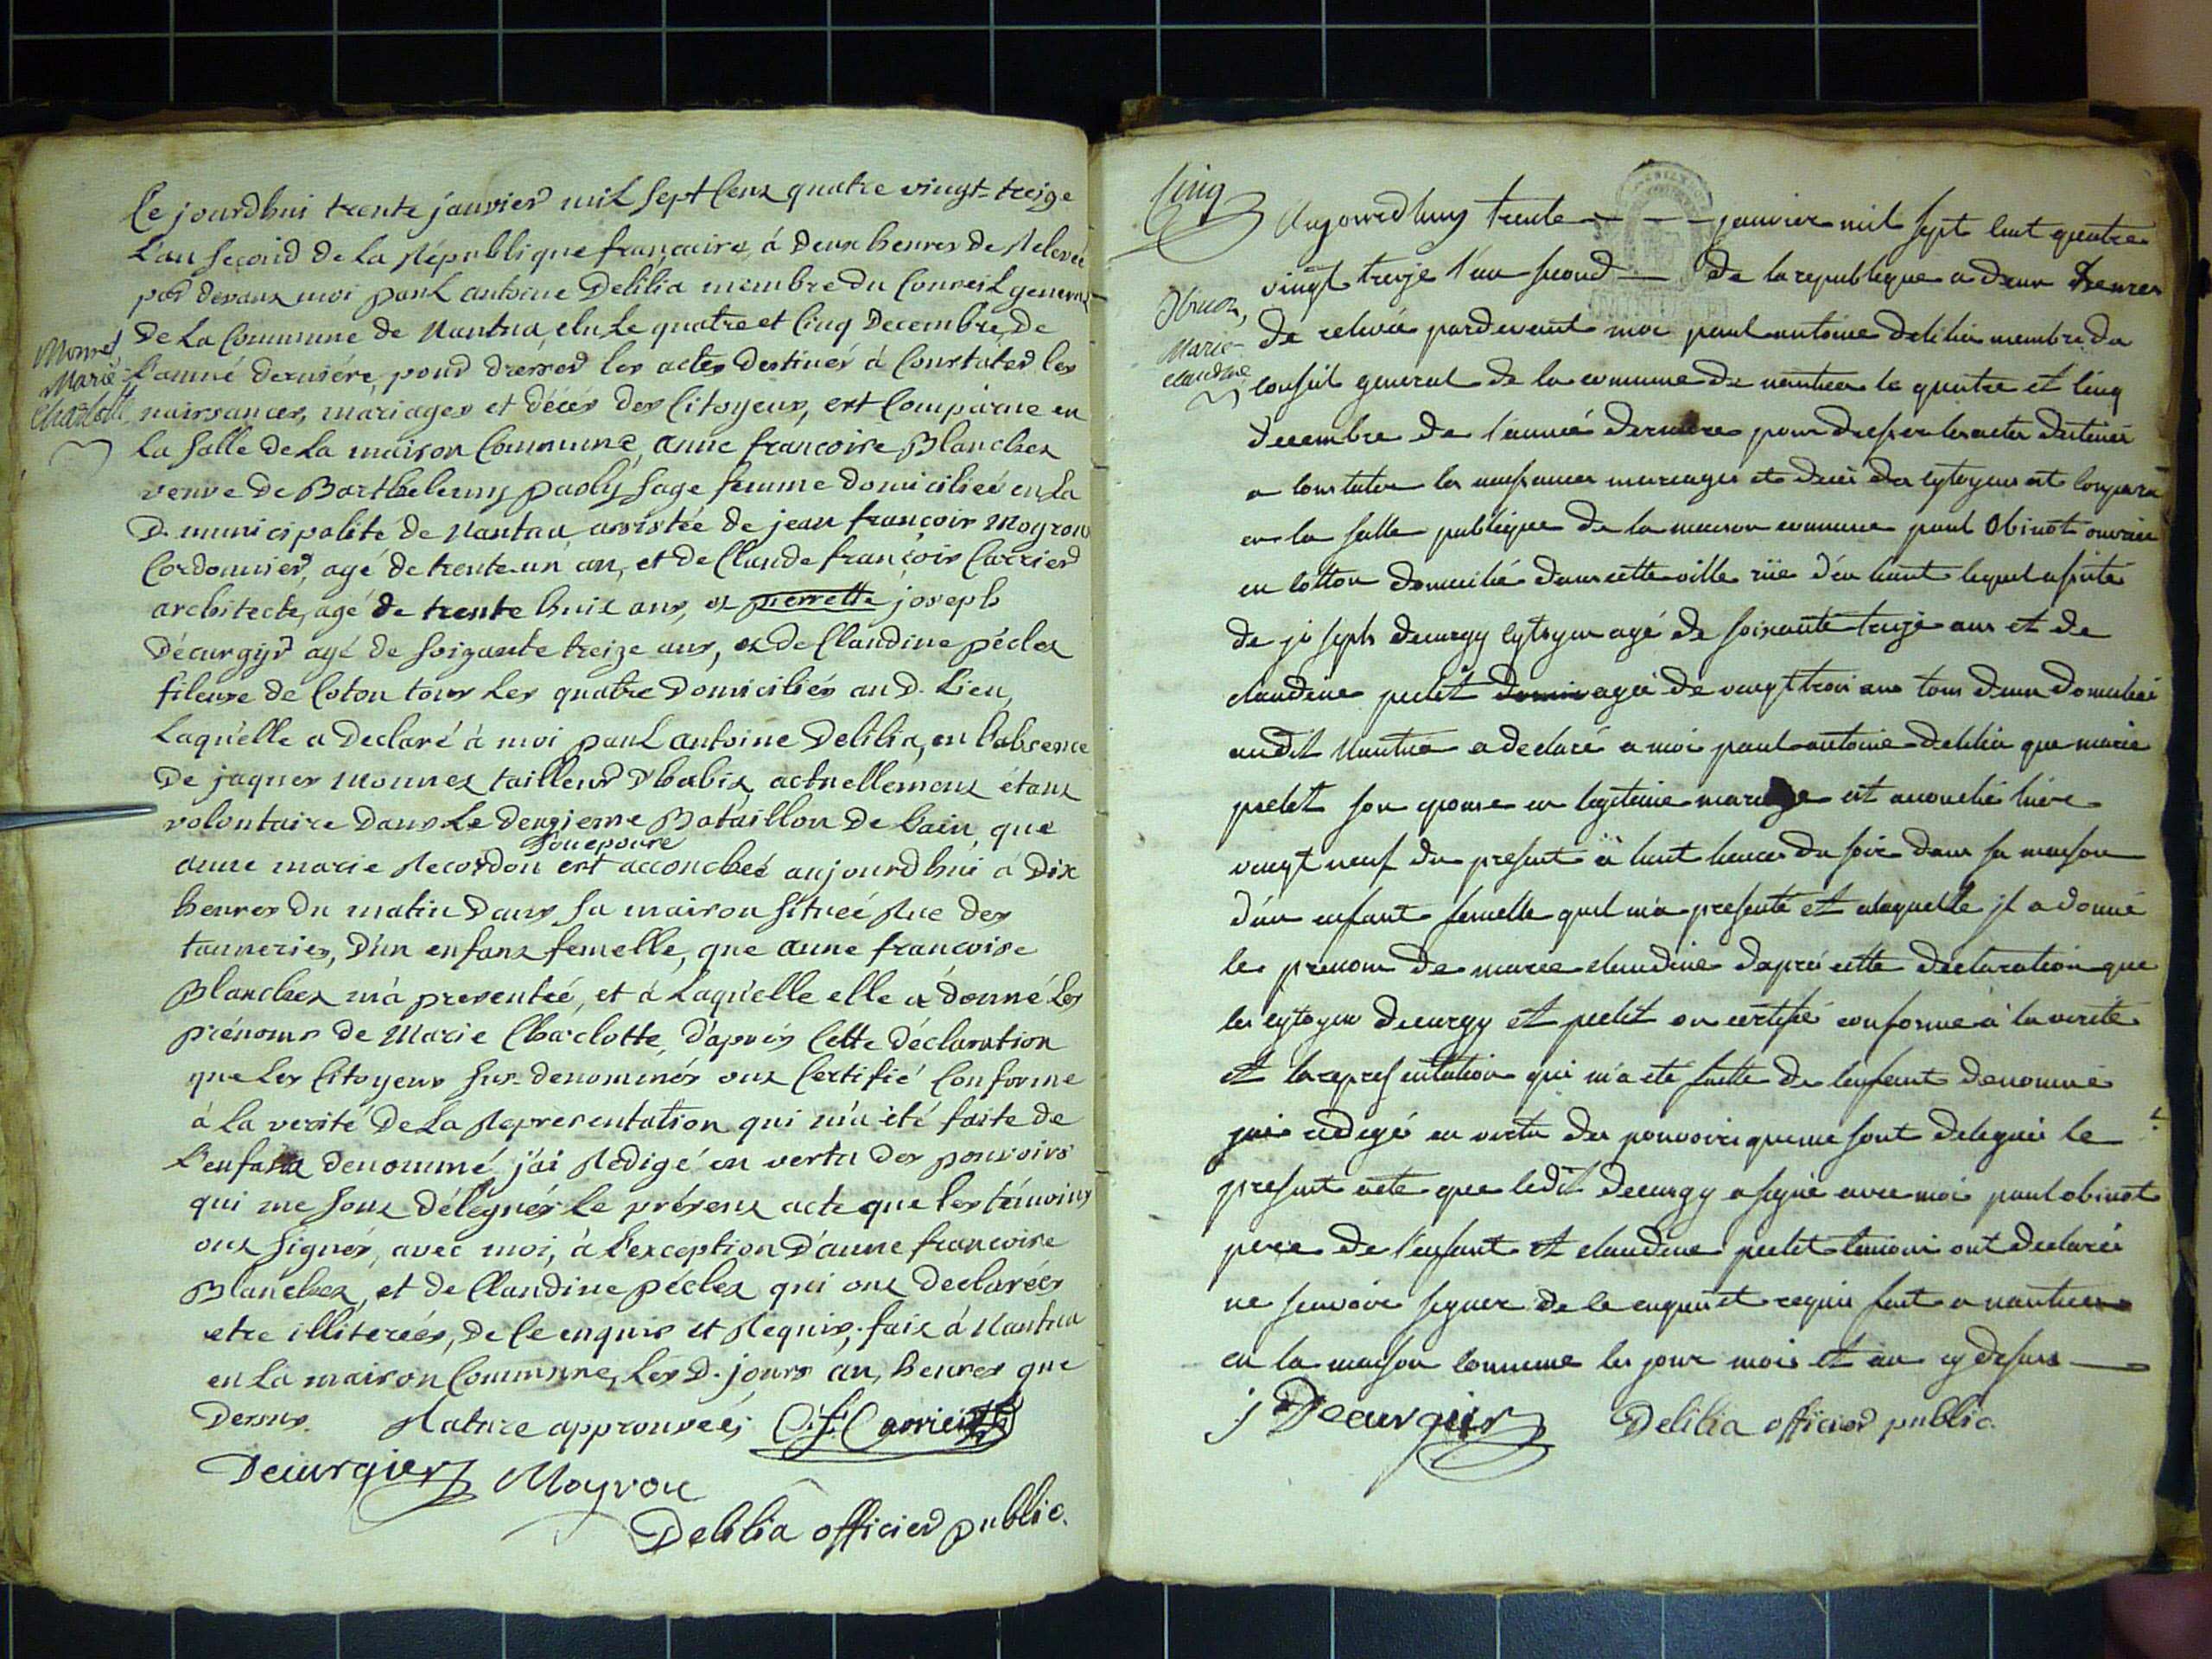 Ce jourdhui trente janvier mil sept Cent quatre vingt-treize
L'an second de la République française, à deux heures de Relevée
par devant moi paul antoine Delilia membre du Conseil general
De La Commune de Nantua, élu Le quatre et Cinq Decembre, de
Monnet
Marie
Charlotte
L'anné derniére, pour dresser les actes destinés à Constater les
naissances, mariages et décés des Citoyens, est Comparue en
La Salle de La maison Commune, anne francoise Blanchet
veuve De Barthelemy paoly Sage femme domiciliée en La
D. municipalité de Nantua assistée de jean françois Moyron
Cordonnier, agé de trente un an, et de Claude françois Carrier
architecte, agé de trente huit ans, et pierrette joseph
Décurgijs agé de soizante treize ans, et de Claudine péclet
fileuse de Coton tous Les quatre Domiciliés au D. Lieu,
Laquelle a Declaré à moi paul antoine Delilia, en L'absence
De jaques Monnet tailleur D'habit, actuellement étant
volontaire dans Le deuzieme Bataillon de L'ain, que
Son epouse
anne marie Recordon est accouchée aujourdhui à Dix
heures du matin Dans sa maison située Rue des
tanneries, D'un enfant femelle, que anne francoise
Blanchet m'a presentée, et à Laquelle elle a donné Les
prénoms de Marie Charlotte, d'aprés Cette déclaration
que Les Citoyens sus-denommés ont Certifié Conforme
à La verité De La Representation qui m'a été faite de
L'enfant denommé j'ai Redigé en vertu des pouvoirs
qui me sont délegués Le présent acte que les témoins
ont signés, avec moi, à L'exception D'anne francoise
Blanchet, et de Claudine péclet qui ont declarées
etre illiterées, de Ce enquis et Requis; fait à Nantua
en La maison Commune, Les D. jours an, heures que
Dessus. Rature approuvée; C. f. Carrier
Decurgier Moyron
Delilia officier public.
Cinq
Aujourdhuy trente janvier mil sept cent quatre
vingt treize l'an second de la republique a deux heures
Obinot,
Marie
claudine
de relevée pardevant moi paul antoine delilia membre du
conseil general de la commune de nantua le quatre et cinq
decembre de l'année derniere pour dresser les actes destinés
a constater les naissances mariages et decés des cytoyens est comparu
en la salle publique de la maison commune paul Obinot ouvrier
en cotton domicilié dans cette ville rüe d'en haut lequel assisté
de joseph decurgy cytoyen agé de soixante treize ans et de
claudine peclet agée de vingt trois ans tous deux domiciliés
audit Nantua a declaré a moi paul antoine delilia que marie
peclet son epouse en legitime mariage est accouché hiere
vingt neuf du present à huit heures du soir dans sa maison
d'un enfant femelle quel m'a presenté et alaquelle il a donné
les prenom de marie claudine daprés cette declaration que
les cytoyens decurgy et peclet on certifié conforme à la verité
et la representation qui m'a eté faitte de lenfant denommé
jai redigé en vertu des pouvoirs qui me sont delegués le
present acte que ledit decurgy a signé avec moi paul obinot
pere de l'enfant et claudine peclet temoins ont declarés
ne scavoire signer de ce enquis et requis fait a nantua
en la maison commune les jour mois et an cy dessus
j Decurgier Delilia officier public.